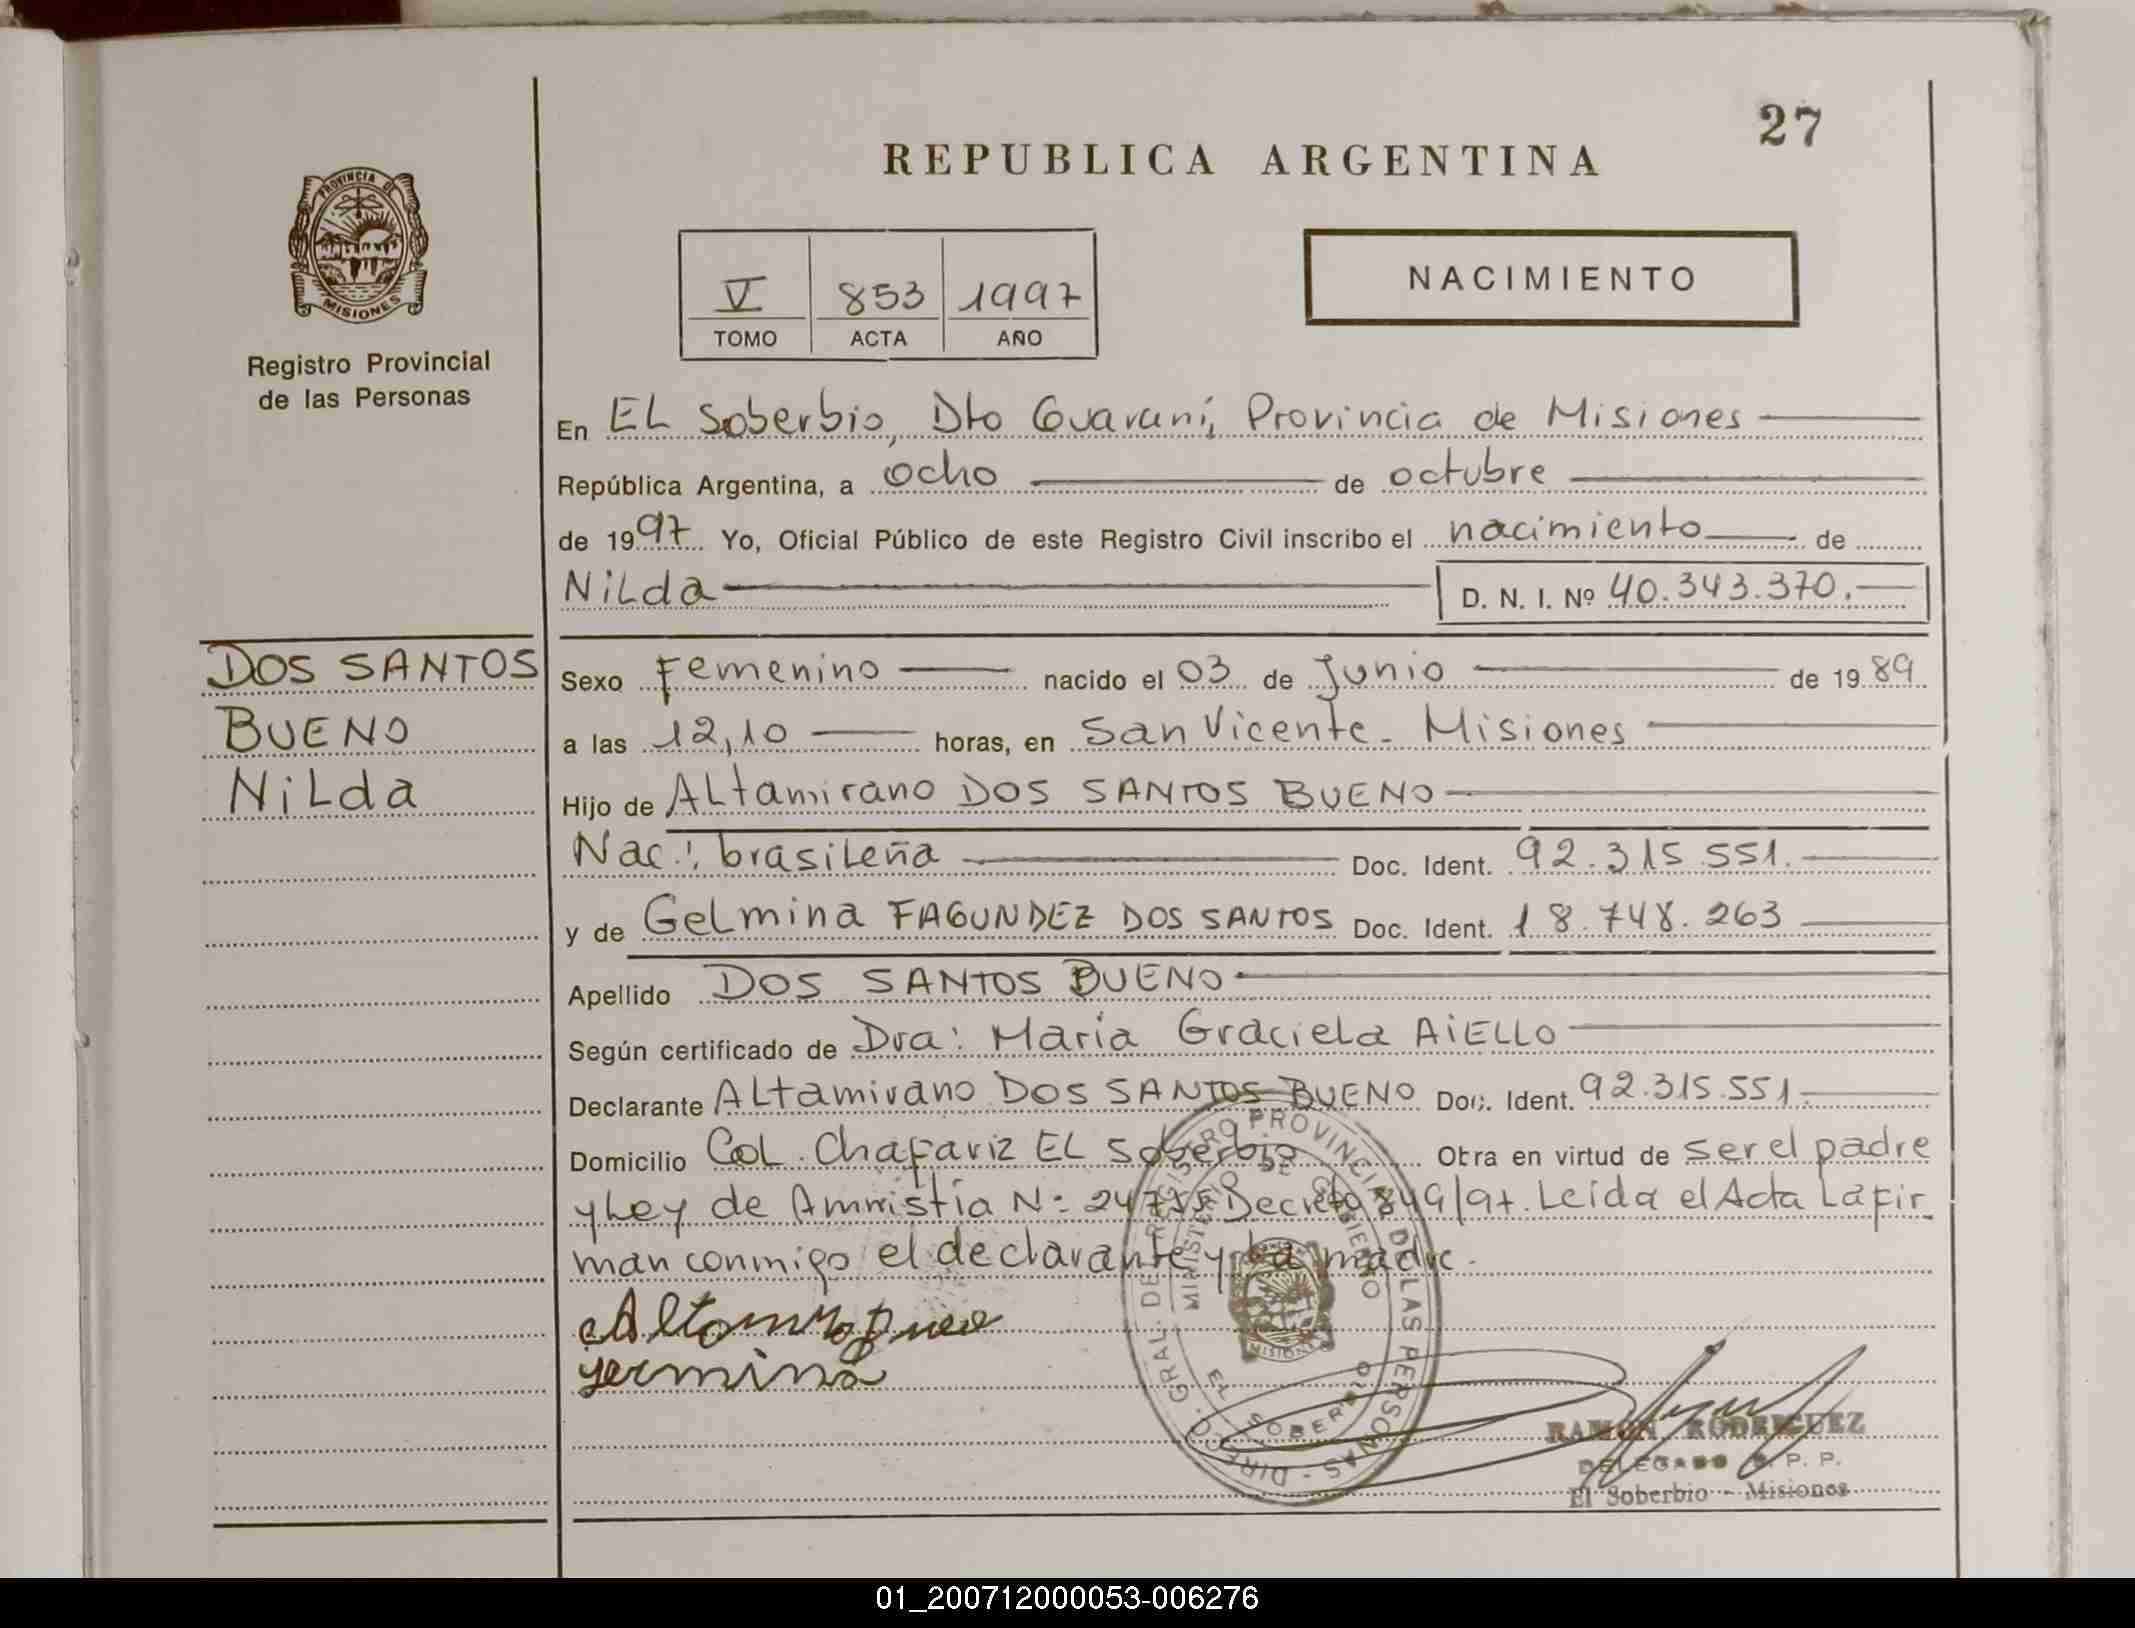 27
REPUBLICA ARGENTINA
PROVINCIA DE
MISIONES
Registro Provincial
de las Personas
V 853 1997
TOMO ACTA AÑO
NACIMIENTO
En EL Soberbio, Dto Guaraní, Provincia de Misiones
República Argentina, a ocho de octubre
de 1997 Yo, Oficial Público de este Registro Civil inscribo el nacimiento de
NiLda D. N. I. Nº 40.343.370.
DOS SANTOS
BUENO
NiLda
Sexo Femenino nacido el 03 de Junio de 1989
a las 12,10 horas, en San Vicente - Misiones
Hijo de ALtamirano DOS SANTOS BUENO
Nac.: brasiLeña Doc. Ident. 92.315.551.
y de GeLmina FAGUNDEZ DOS SANTOS Doc. Ident. 18.748.263
Apellido DOS SANTOS BUENO
Según certificado de Dra: María Graciela AiELLO
Declarante ALtamirano DOS SANTOS BUENO Doc. Ident. 92.315.551.
Domicilio CoL. Chafariz EL Soberbio Otra en virtud de ser el padre
y Ley de Amnistía N: 24755 Decreto 849/97. Leída el Acta La fir-
man conmigo el declarante y La madre.
DIRECC. GRAL. DE REGISTRO PROVINCIAL DE LAS PERSONAS -
MINISTERIO DE GOBIERNO
MISIONES
EL SOBERBIO
RAMON RODRIGUEZ
DELEGADO R. P. P.
El Soberbio - Misiones
01_200712000053-006276